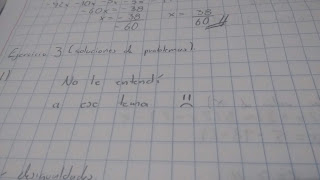 -60x = -38
x = -38
-60
x = 38
60
Ejercicio 3 (soluciones de problemas)
1)
No le entendí
a ese tema
desigualdades